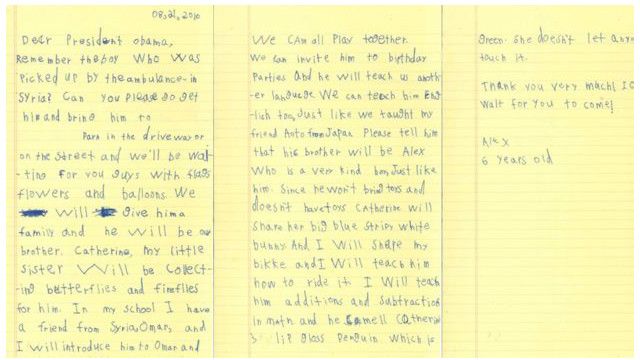 08,21,2016
Dear President obama,
Remember the boy Who was
Picked up by the ambulance in
Syria? Can you Please go get
him and bring him to
Park in the driveway or
on the street and we'll be wai-
ting For you guys with flags
flowers and balloons. We
will give him a
family and he will be our
brother. Catherine, my little
sister Will be collect-
ing butterflies and fireflies
for him. In my school I have
a friend from Syria, Omar, and
I will introduce him to Omar and
We can all Play together.
We can invite him to birthday
Parties And he will teach us anoth-
er language We can teach him Eng-
lish too, Just like we taught my
friend Aoto from Japan Please tell him
that his brother will be Alex
Who is a very kind boy, Just like
him. Since he won't bring toys and
doesn't have toys Catherine will
share her big blue stripy white
bunny. And I Will share my
bikke and I Will teach him
how to ride it. I Will teach
him additions and subtractions
in math and he
lip gloss Penguin which is
green. She doesn't let
touch it.
Thank you very much! I
wait for you to come!
Alex
6 years old